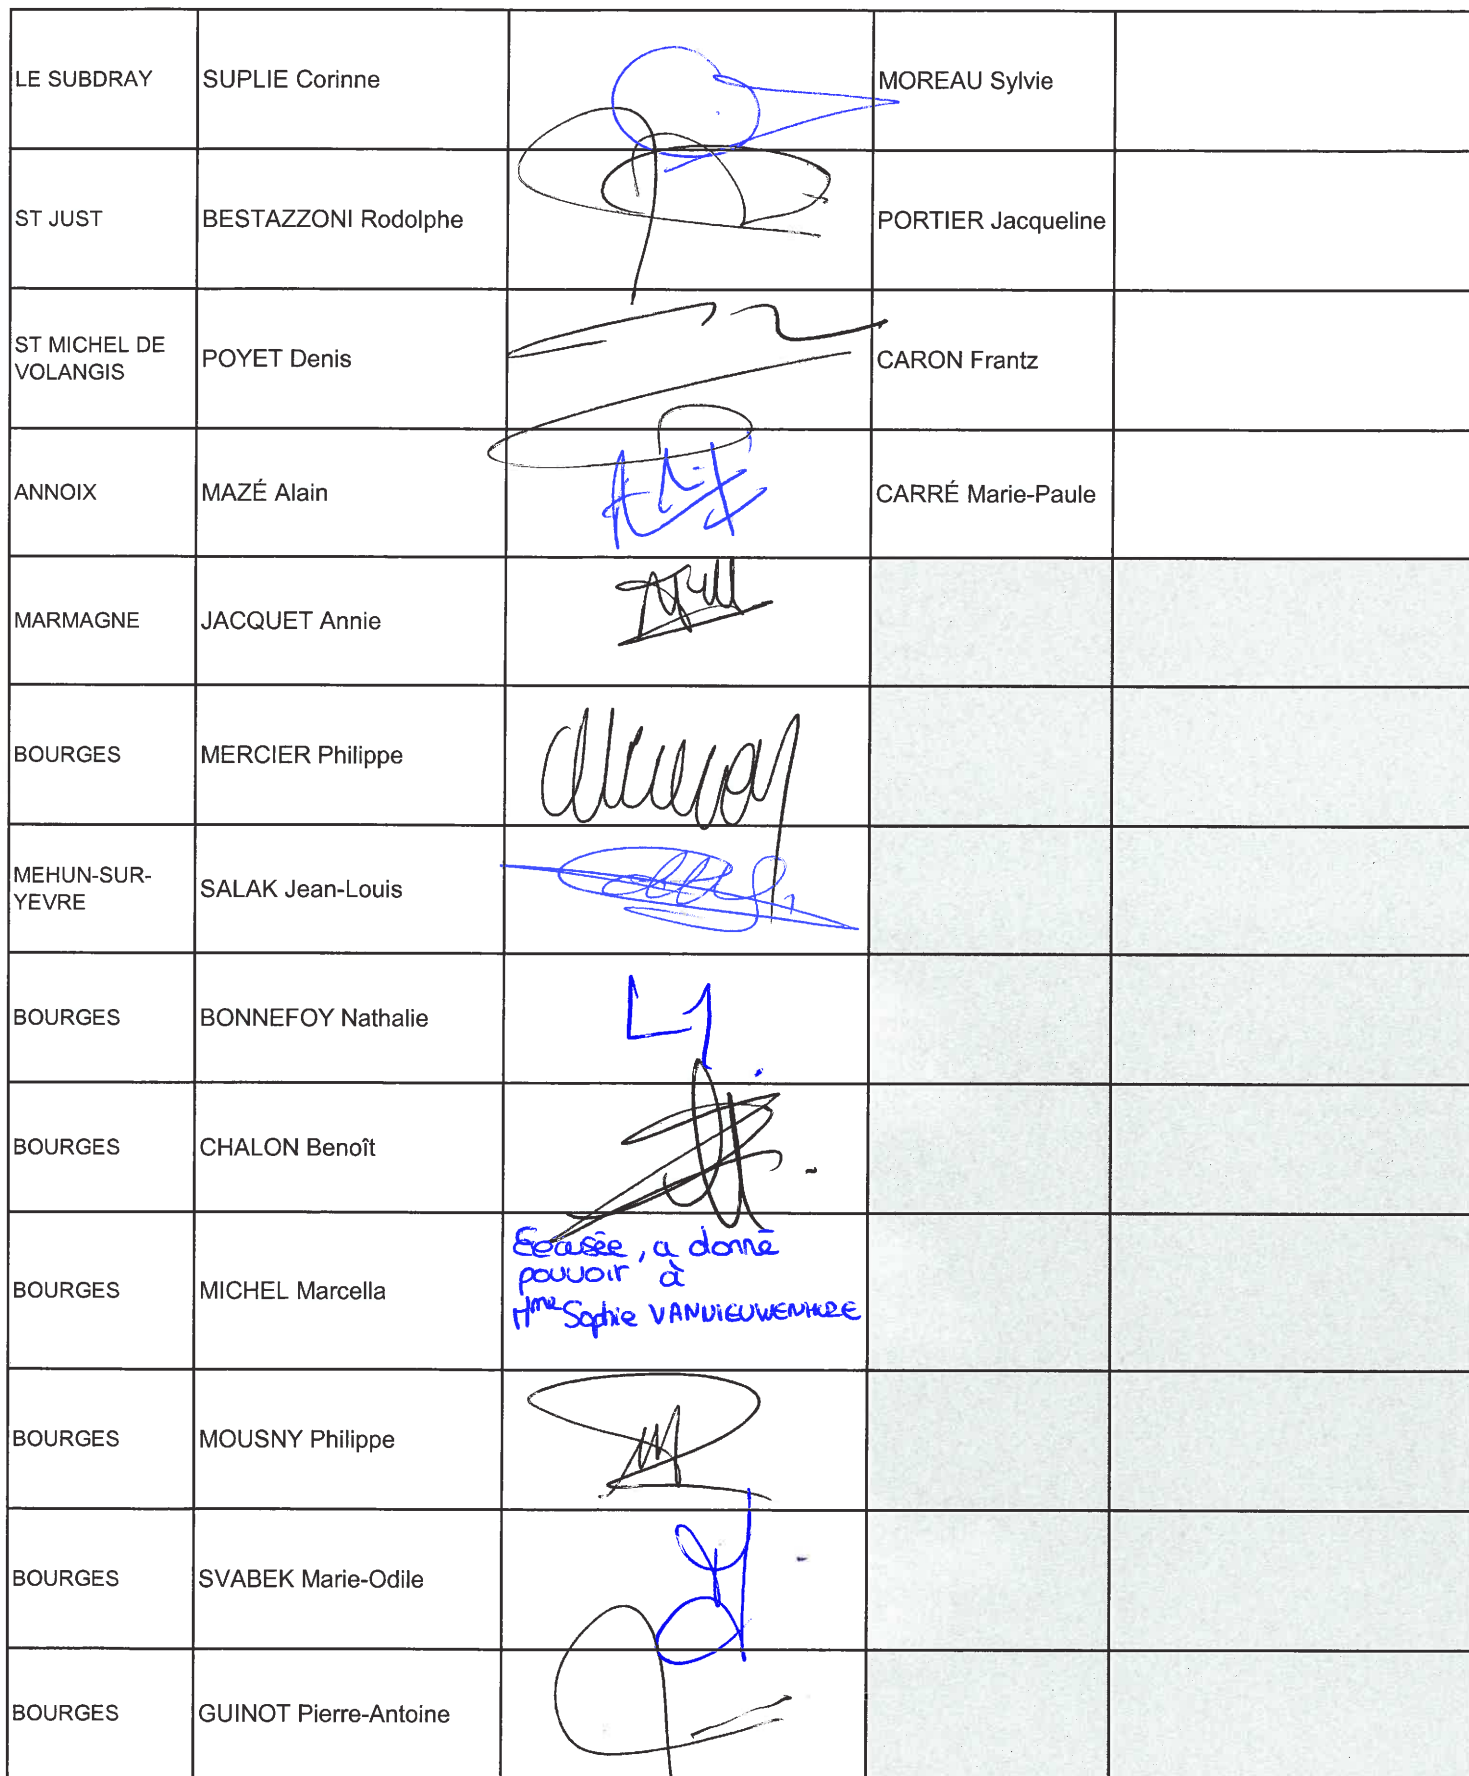 LE SUBDRAY SUPLIE Corinne MOREAU Sylvie
ST JUST BESTAZZONI Rodolphe PORTIER Jacqueline
ST MICHEL DE
VOLANGIS POYET Denis CARON Frantz
ANNOIX MAZÉ Alain CARRÉ Marie-Paule
MARMAGNE JACQUET Annie
BOURGES MERCIER Philippe
MEHUN-SUR-
YEVRE SALAK Jean-Louis
BOURGES BONNEFOY Nathalie
BOURGES CHALON Benoît
BOURGES MICHEL Marcella
Excusée, a donné
pouvoir à
Mme Sophie
BOURGES MOUSNY Philippe
BOURGES SVABEK Marie-Odile
BOURGES GUINOT Pierre-Antoine